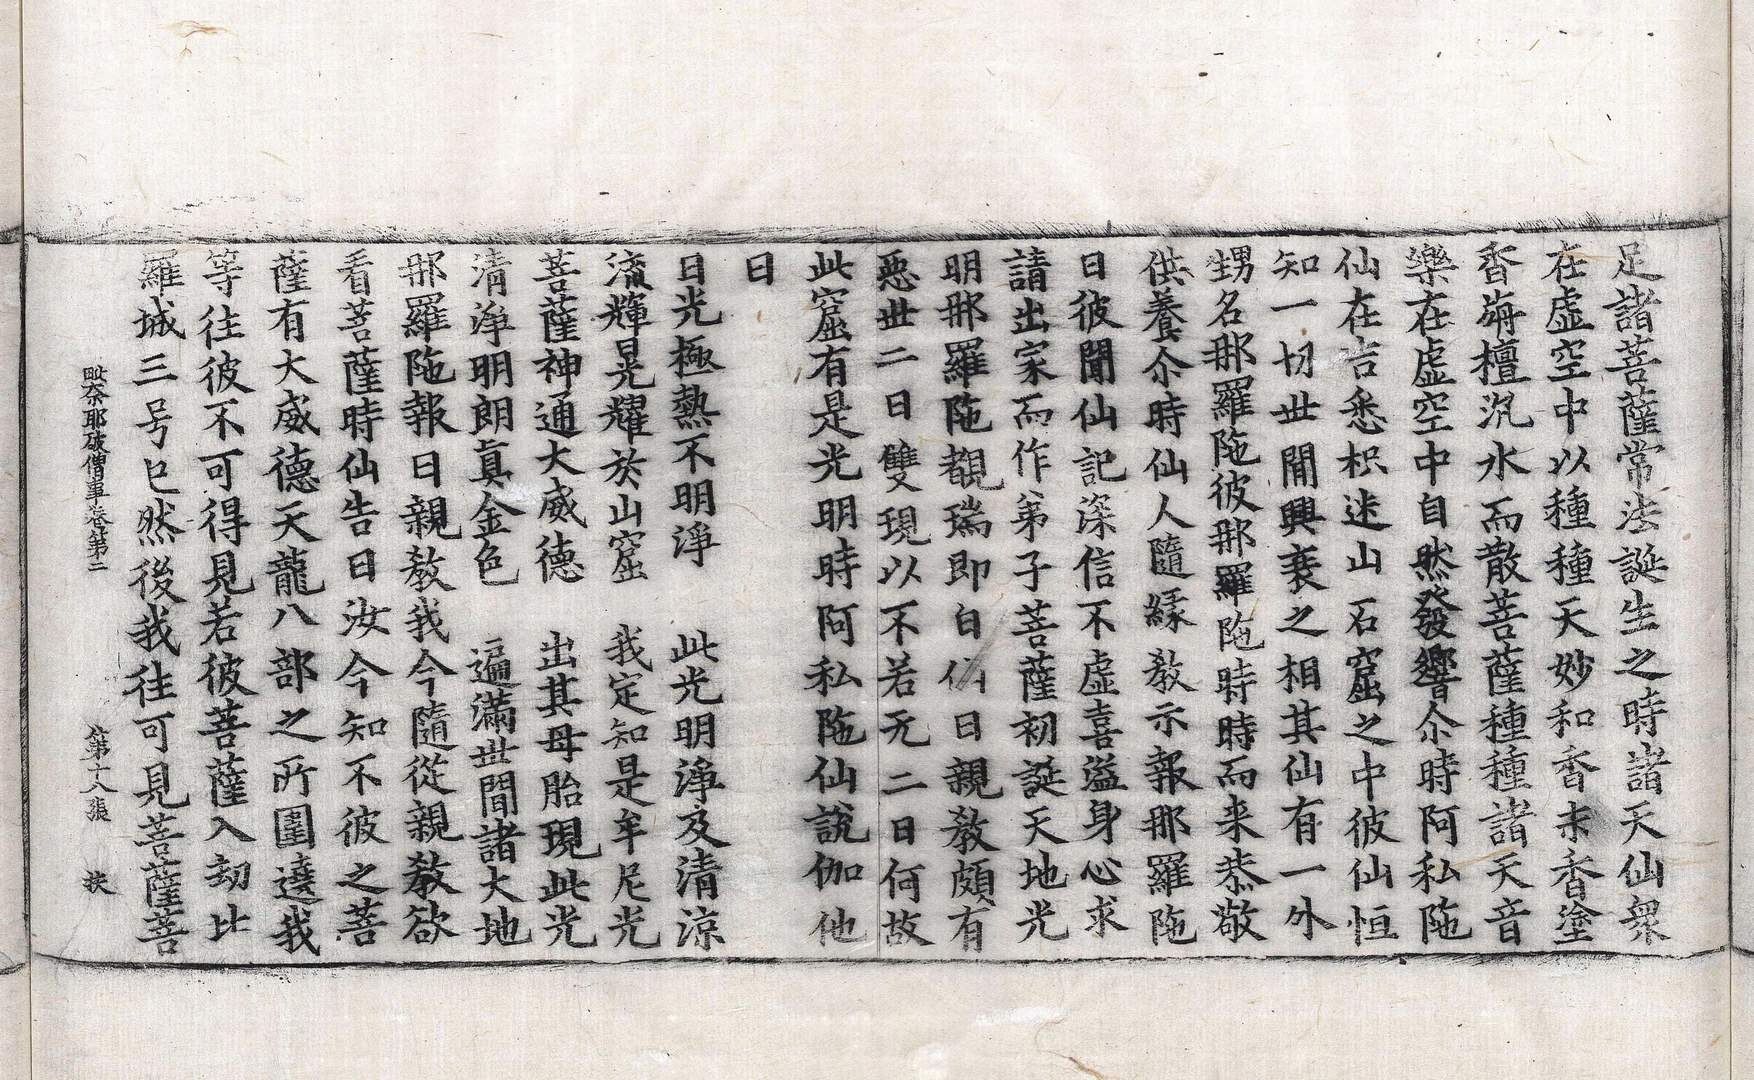 足諸菩薩常法誕生之時諸天仙衆
在虛空中以種種天妙和香末香塗
香旃檀沉水而散菩薩種種諸天音
樂在虛空中自然發響尒時阿私陁
仙在吉悉枳迷山石窟之中彼仙恒
知一切世閒興衰之相其仙有一外
甥名那羅陁彼那羅陁時時而来恭敬
供養尒時仙人隨緣教示報那羅陁
日彼聞仙記深信不虛喜溢身心求
請出家而作弟子菩薩初誕天地光
明那羅陁覩瑞即白仙曰親教頗有
惡世二日雙現以不若无二日何故
此窟有是光明時阿私陁仙說伽他
曰
日光極熱不明淨　此光明淨及清涼
流輝晃耀於山窟　我定知是牟尼光
菩薩神通大威德　出其母胎現此光
清淨明朗真金色　遍滿世間諸大地
那羅陁報曰親教我今隨從親教欲
看菩薩時仙告曰汝今知不彼之菩
薩有大威德天龍八部之所圍遶我
等往彼不可得見若彼菩薩入劫比
羅城三号已然後我往可見菩薩菩
毗奈耶破僧事卷第二　第十八張　挾